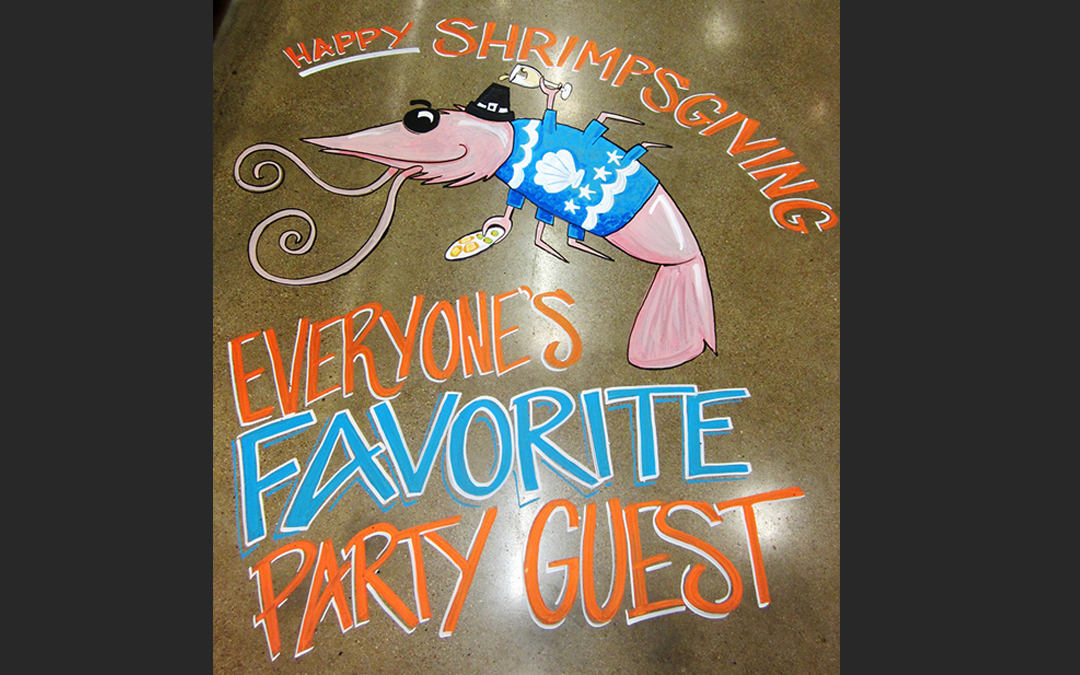 HAPPY SHRIMPSGIVING
EVERYONE'S
FAVORITE
PARTY GUEST